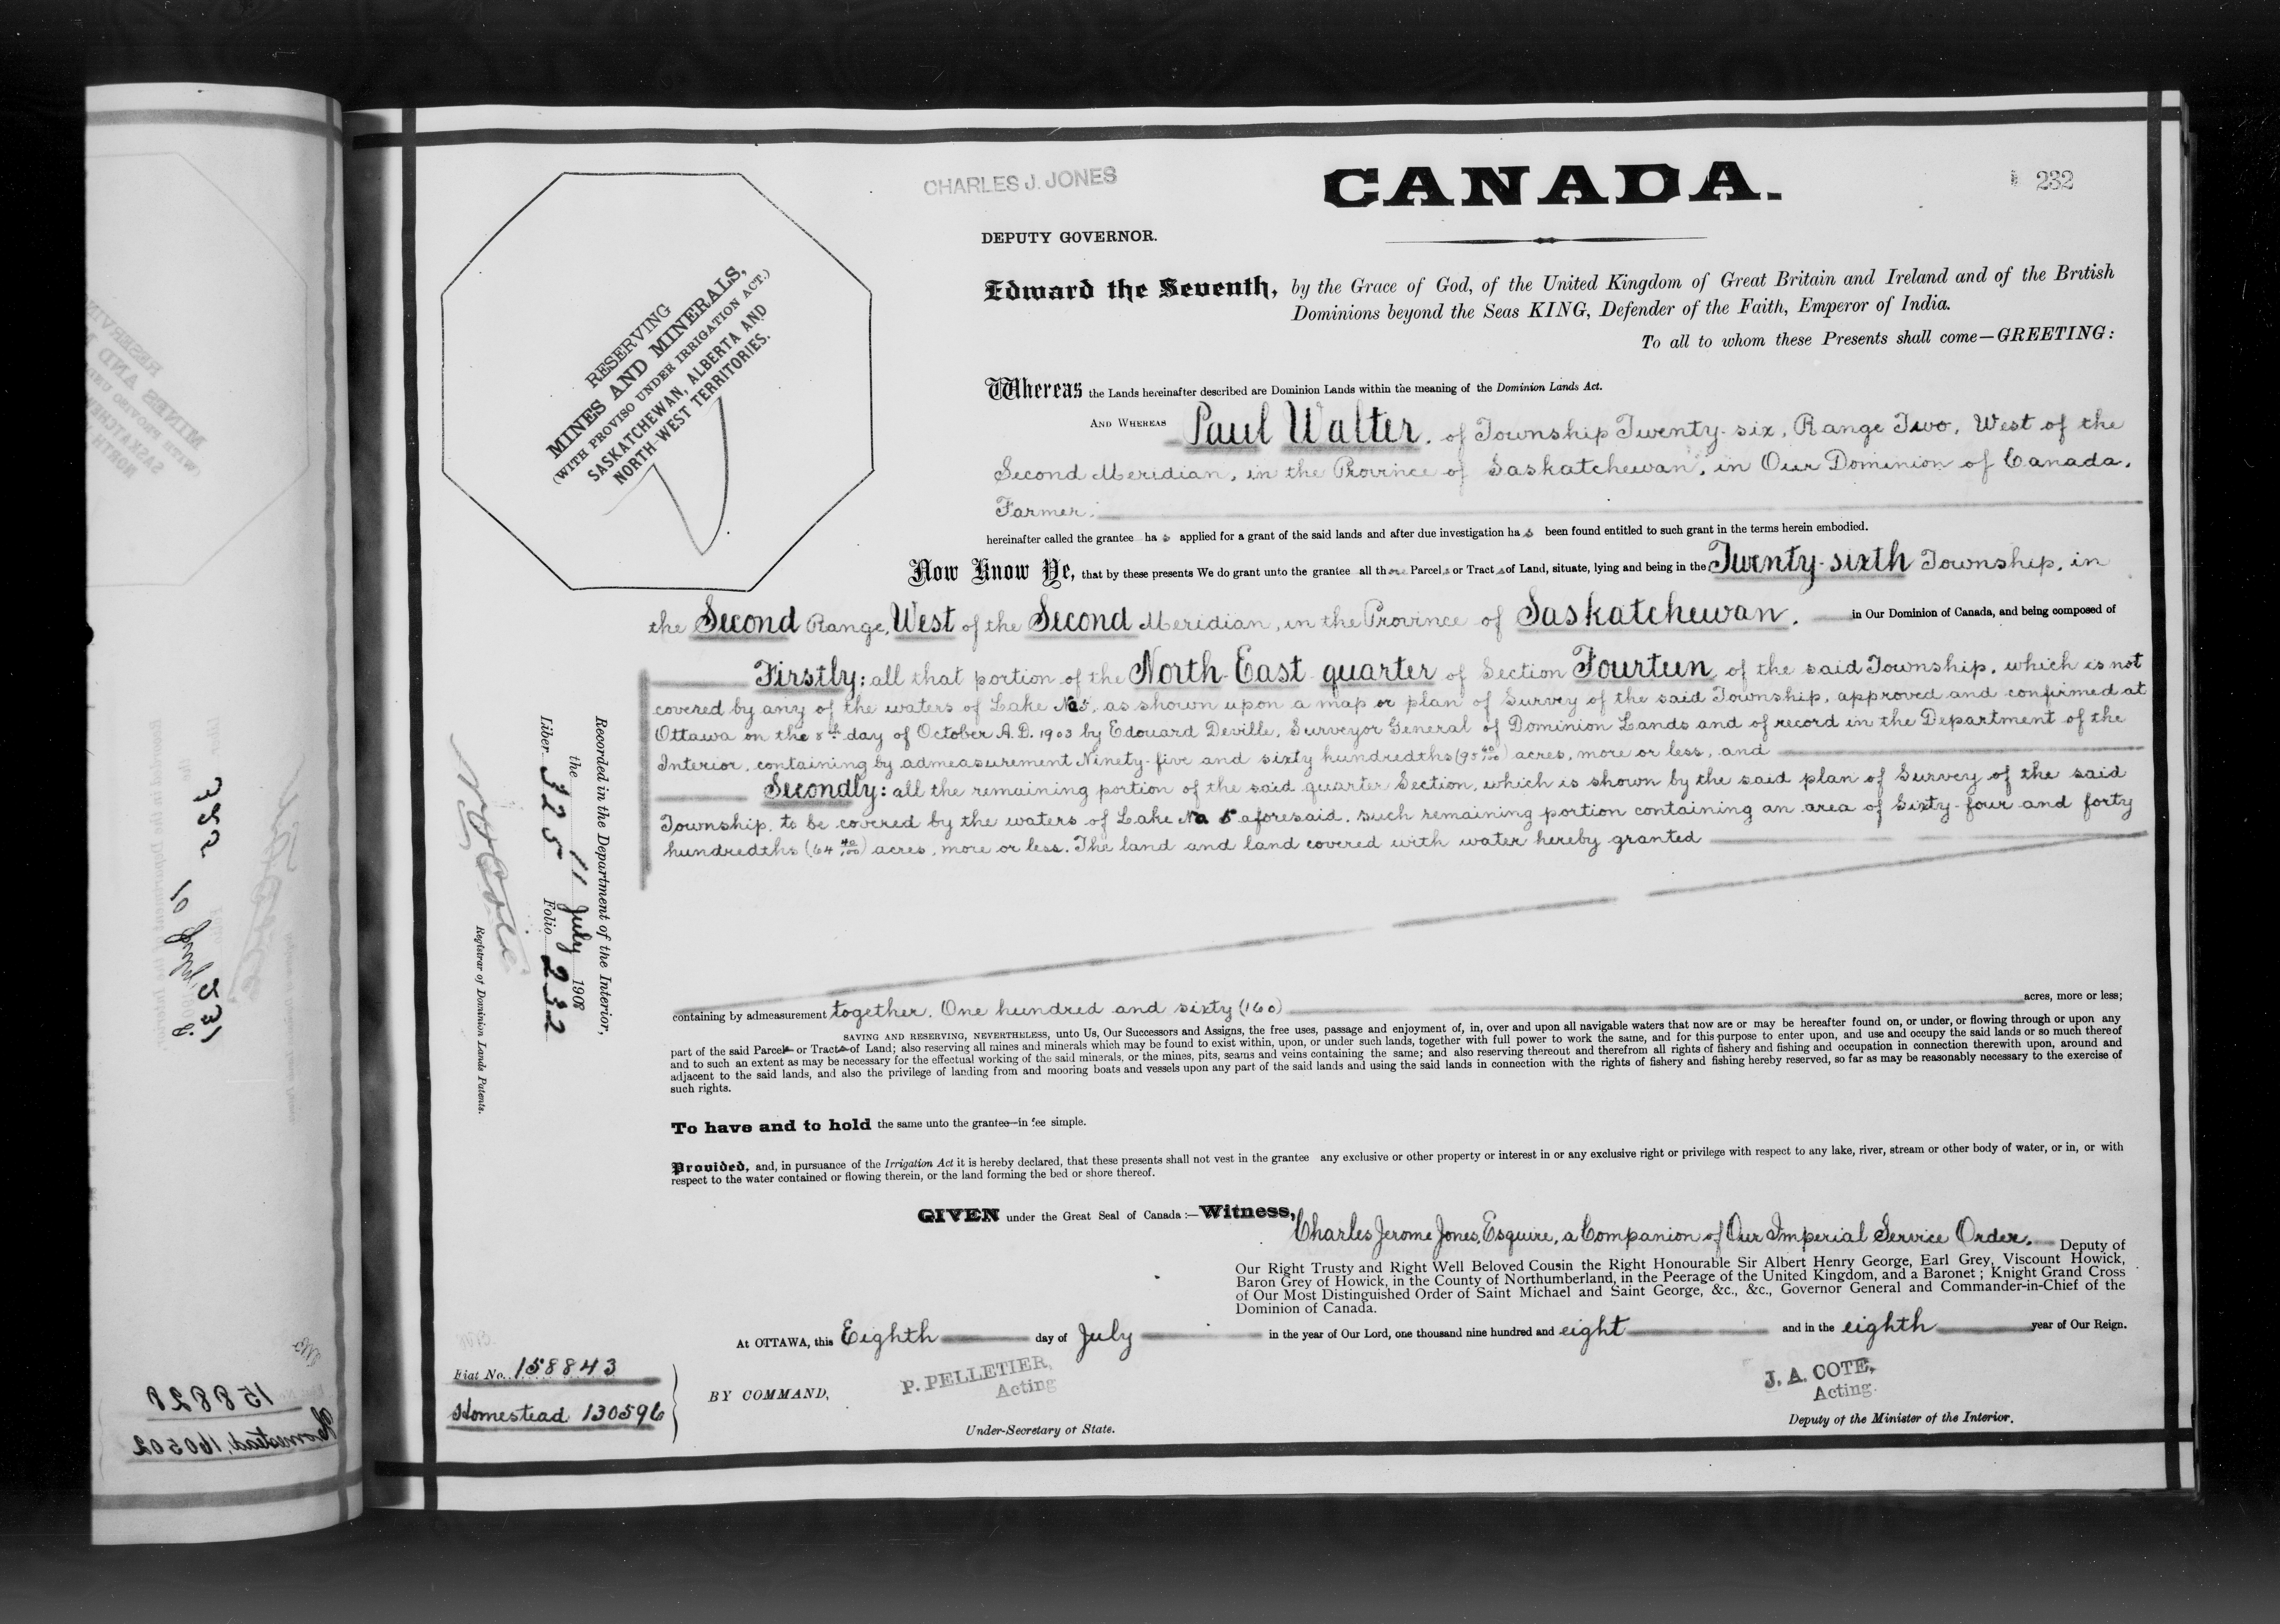 CHARLES J. JONES
CANADA.
232
DEPUTY GOVERNOR.
RESERVING
MINES AND MINERALS,
(WITH PROVISO UNDER IRRIGATION ACT.)
SASKATCHEWAN, ALBERTA AND
NORTH-WEST TERRITORIES.
Edward the Seventh, by the Grace of God, of the United Kingdom of Great Britain and Ireland and of the British
Dominions beyond the Seas KING, Defender of the Faith, Emperor of India.
To all to whom these Presents shall come—GREETING:
Whereas the Lands hereinafter described are Dominion Lands within the meaning of the Dominion Lands Act.
AND WHEREAS Paul Walter, of Township Twenty-six, Range Two, West of the
Second Meridian, in the Province of Saskatchewan, in Our Dominion of Canada,
Farmer,
hereinafter called the grantee has applied for a grant of the said lands and after due investigation has been found entitled to such grant in the terms herein embodied.
Now Know Ye, that by these presents We do grant unto the grantee all those Parcels or Tracts of Land, situate, lying and being in the Twenty-sixth Township, in
the Second Range, West of the Second Meridian, in the Province of Saskatchewan, in Our Dominion of Canada, and being composed of
Firstly: all that portion of the North-East quarter of Section Fourteen, of the said Township, which is not
covered by any of the waters of Lake No 5, as shown upon a map or plan of Survey of the said Township, approved and confirmed at
Ottawa on the 8th day of October A.D. 1903 by Edouard Deville, Surveyor General of Dominion Lands and of record in the Department of the
Interior, containing by admeasurement Ninety-five and sixty hundredths (95 60/100) acres, more or less, and
Secondly: all the remaining portion of the said quarter Section, which is shown by the said plan of Survey of the said
Township, to be covered by the waters of Lake No 5 aforesaid, such remaining portion containing an area of Sixty-four and forty
hundredths (64 40/100) acres, more or less. The land and land covered with water hereby granted
containing by admeasurement together, One hundred and sixty (160) acres, more or less;
SAVING AND RESERVING, NEVERTHELESS, unto Us, Our Successors and Assigns, the free uses, passage and enjoyment of, in, over and upon all navigable waters that now are or may be hereafter found on, or under, or flowing through or upon any
part of the said Parcels or Tracts of Land; also reserving all mines and minerals which may be found to exist within, upon, or under such lands, together with full power to work the same, and for this purpose to enter upon, and use and occupy the said lands or so much thereof
and to such an extent as may be necessary for the effectual working of the said minerals, or the mines, pits, seams and veins containing the same; and also reserving thereout and therefrom all rights of fishery and fishing and occupation in connection therewith upon, around and
adjacent to the said lands, and also the privilege of landing from and mooring boats and vessels upon any part of the said lands and using the said lands in connection with the rights of fishery and fishing hereby reserved, so far as may be reasonably necessary to the exercise of
such rights.
To have and to hold the same unto the grantee—in fee simple.
Provided, and, in pursuance of the Irrigation Act it is hereby declared, that these presents shall not vest in the grantee any exclusive or other property or interest in or any exclusive right or privilege with respect to any lake, river, stream or other body of water, or in, or with
respect to the water contained or flowing therein, or the land forming the bed or shore thereof.
GIVEN under the Great Seal of Canada:—Witness,
Charles Jerome Jones, Esquire, a Companion of Our Imperial Service Order, Deputy of
Our Right Trusty and Right Well Beloved Cousin the Right Honourable Sir Albert Henry George, Earl Grey, Viscount Howick,
Baron Grey of Howick, in the County of Northumberland, in the Peerage of the United Kingdom, and a Baronet; Knight Grand Cross
of Our Most Distinguished Order of Saint Michael and Saint George, &c., &c., Governor General and Commander-in-Chief of the
Dominion of Canada.
At OTTAWA, this Eighth day of July in the year of Our Lord, one thousand nine hundred and eight and in the eighth year of Our Reign.
BY COMMAND,
P. PELLETIER,
Acting
Under-Secretary of State.
J. A. COTE,
Acting
Deputy of the Minister of the Interior.
Fiat No. 158843
Homestead 130596
Recorded in the Department of the Interior,
the 11 July 1908
Liber 325 Folio 232
N. O. Coté
Registrar of Dominion Lands Patents.
325 231
10 July
158828
Homestead, 160502